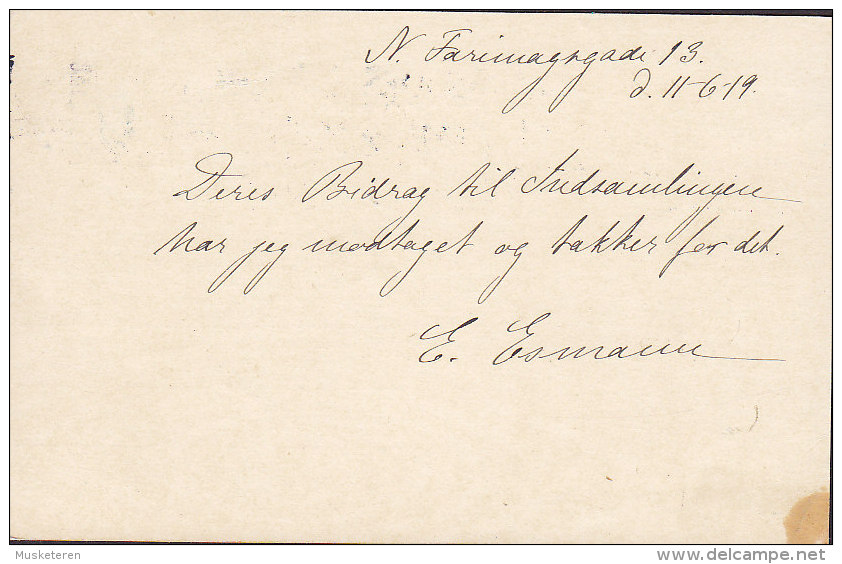 N. Farimagsgade 13.
d. 11-6-19.
Deres Bidrag til Indsamlingen
har jeg modtaget og takker for det.
E. Esmann
Musketeren
www.delcampe.net